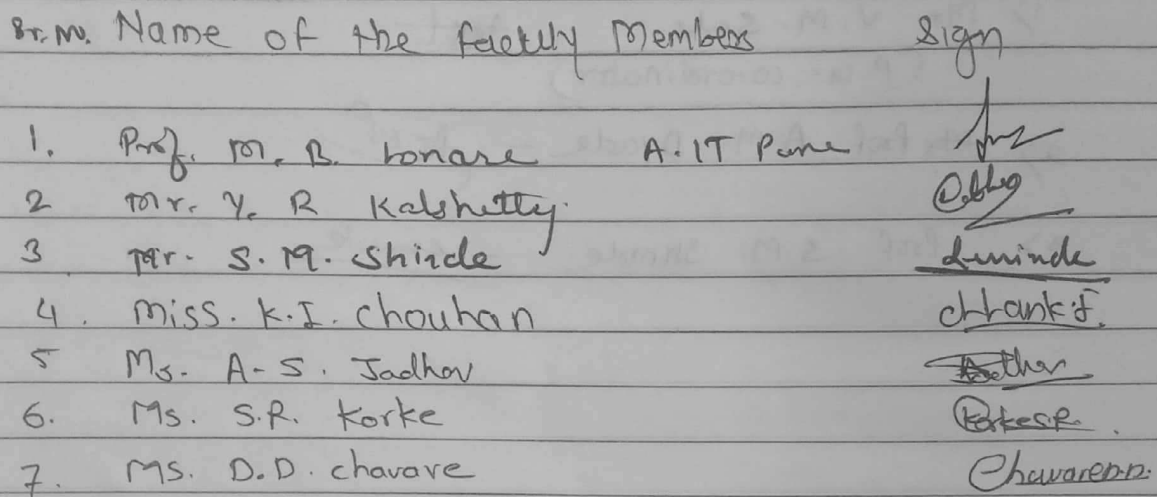 Sr. No. Name of the faculty Members Sign
1. Prof. M. B. Lonare A.IT Pune
2 Mr. Y. R Kalshetty.
3 Mr. S. M. Shinde
4. Miss. K.I. Chouhan
5 Ms. A-S. Jadhav
6. Ms. S.R. Korke KorkeS.R.
7. Ms. D.D. chavare ChavareD.D.